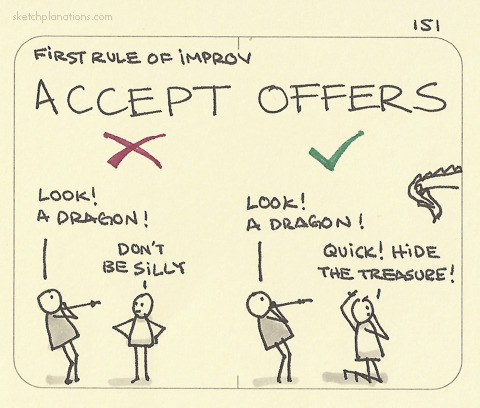 sketchplanations.com
151
FiRST RULE OF iMPROV
ACCEPT OFFERS
LOOK!
A DRAGON!
DON'T
BE SiLLY
LOOK!
A DRAGON!
QUICK! HiDE
THE TREASURE!